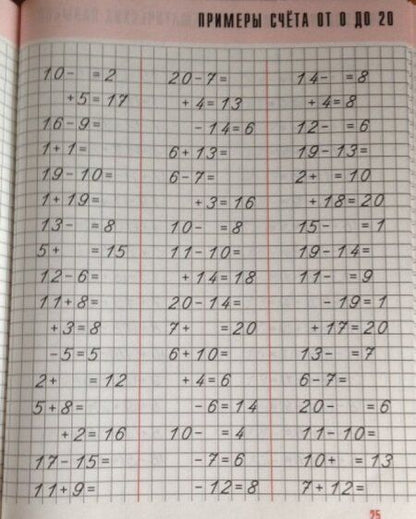 ПРИМЕРЫ СЧЁТА ОТ 0 ДО 20
10-   =2   20-7=   14-   =8
+5=17   +4=13   +4=8
16-9=   -14=6   12-   =6
1+1=   6+13=   19-13=
19-10=   6-7=   2+   =10
1+19=   +3=16   +18=20
13-   =8   10-   =8   15-   =1
5+   =15   11-10=   19-14=
12-6=   +14=18   11-   =9
11+8=   20-14=   -19=1
+3=8   7+   =20   +17=20
-5=5   6+10=   13-   =7
2+   =12   +4=6   6-7=
5+8=   -6=14   20-   =6
+2=16   10-   =4   11-10=
17-15=   -7=6   10+   =13
11+9=   -12=8   7+12=
25